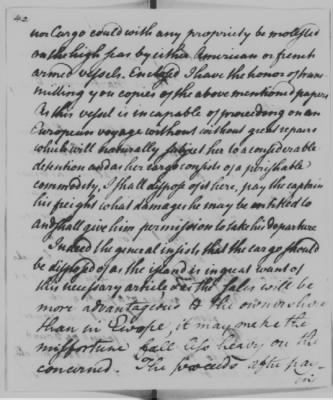 42
nor Cargo could with any propriety be molested
on the high seas by either American or french
armed vessels. Enclosed I have the honor of trans
mitting you copies of the above mentioned papers
As this vessel is incapable of proceeding on an
European voyage without without great repairs
which will naturally subject her to a considerable
detention and as her cargo consists of a perishable
commodity, I shall dispose of it here, pay the captain
his freight & what damages he may be entitled to
and shall give him permission to take his departure
Indeed the general insists that the cargo should
be disposed of as the island is in great want of
this necessary article & as the sales will be
more advantageous to the owners here
than in Europe, it may make the
misfortune fall less heavy on the
concerned. The proceeds after pay-